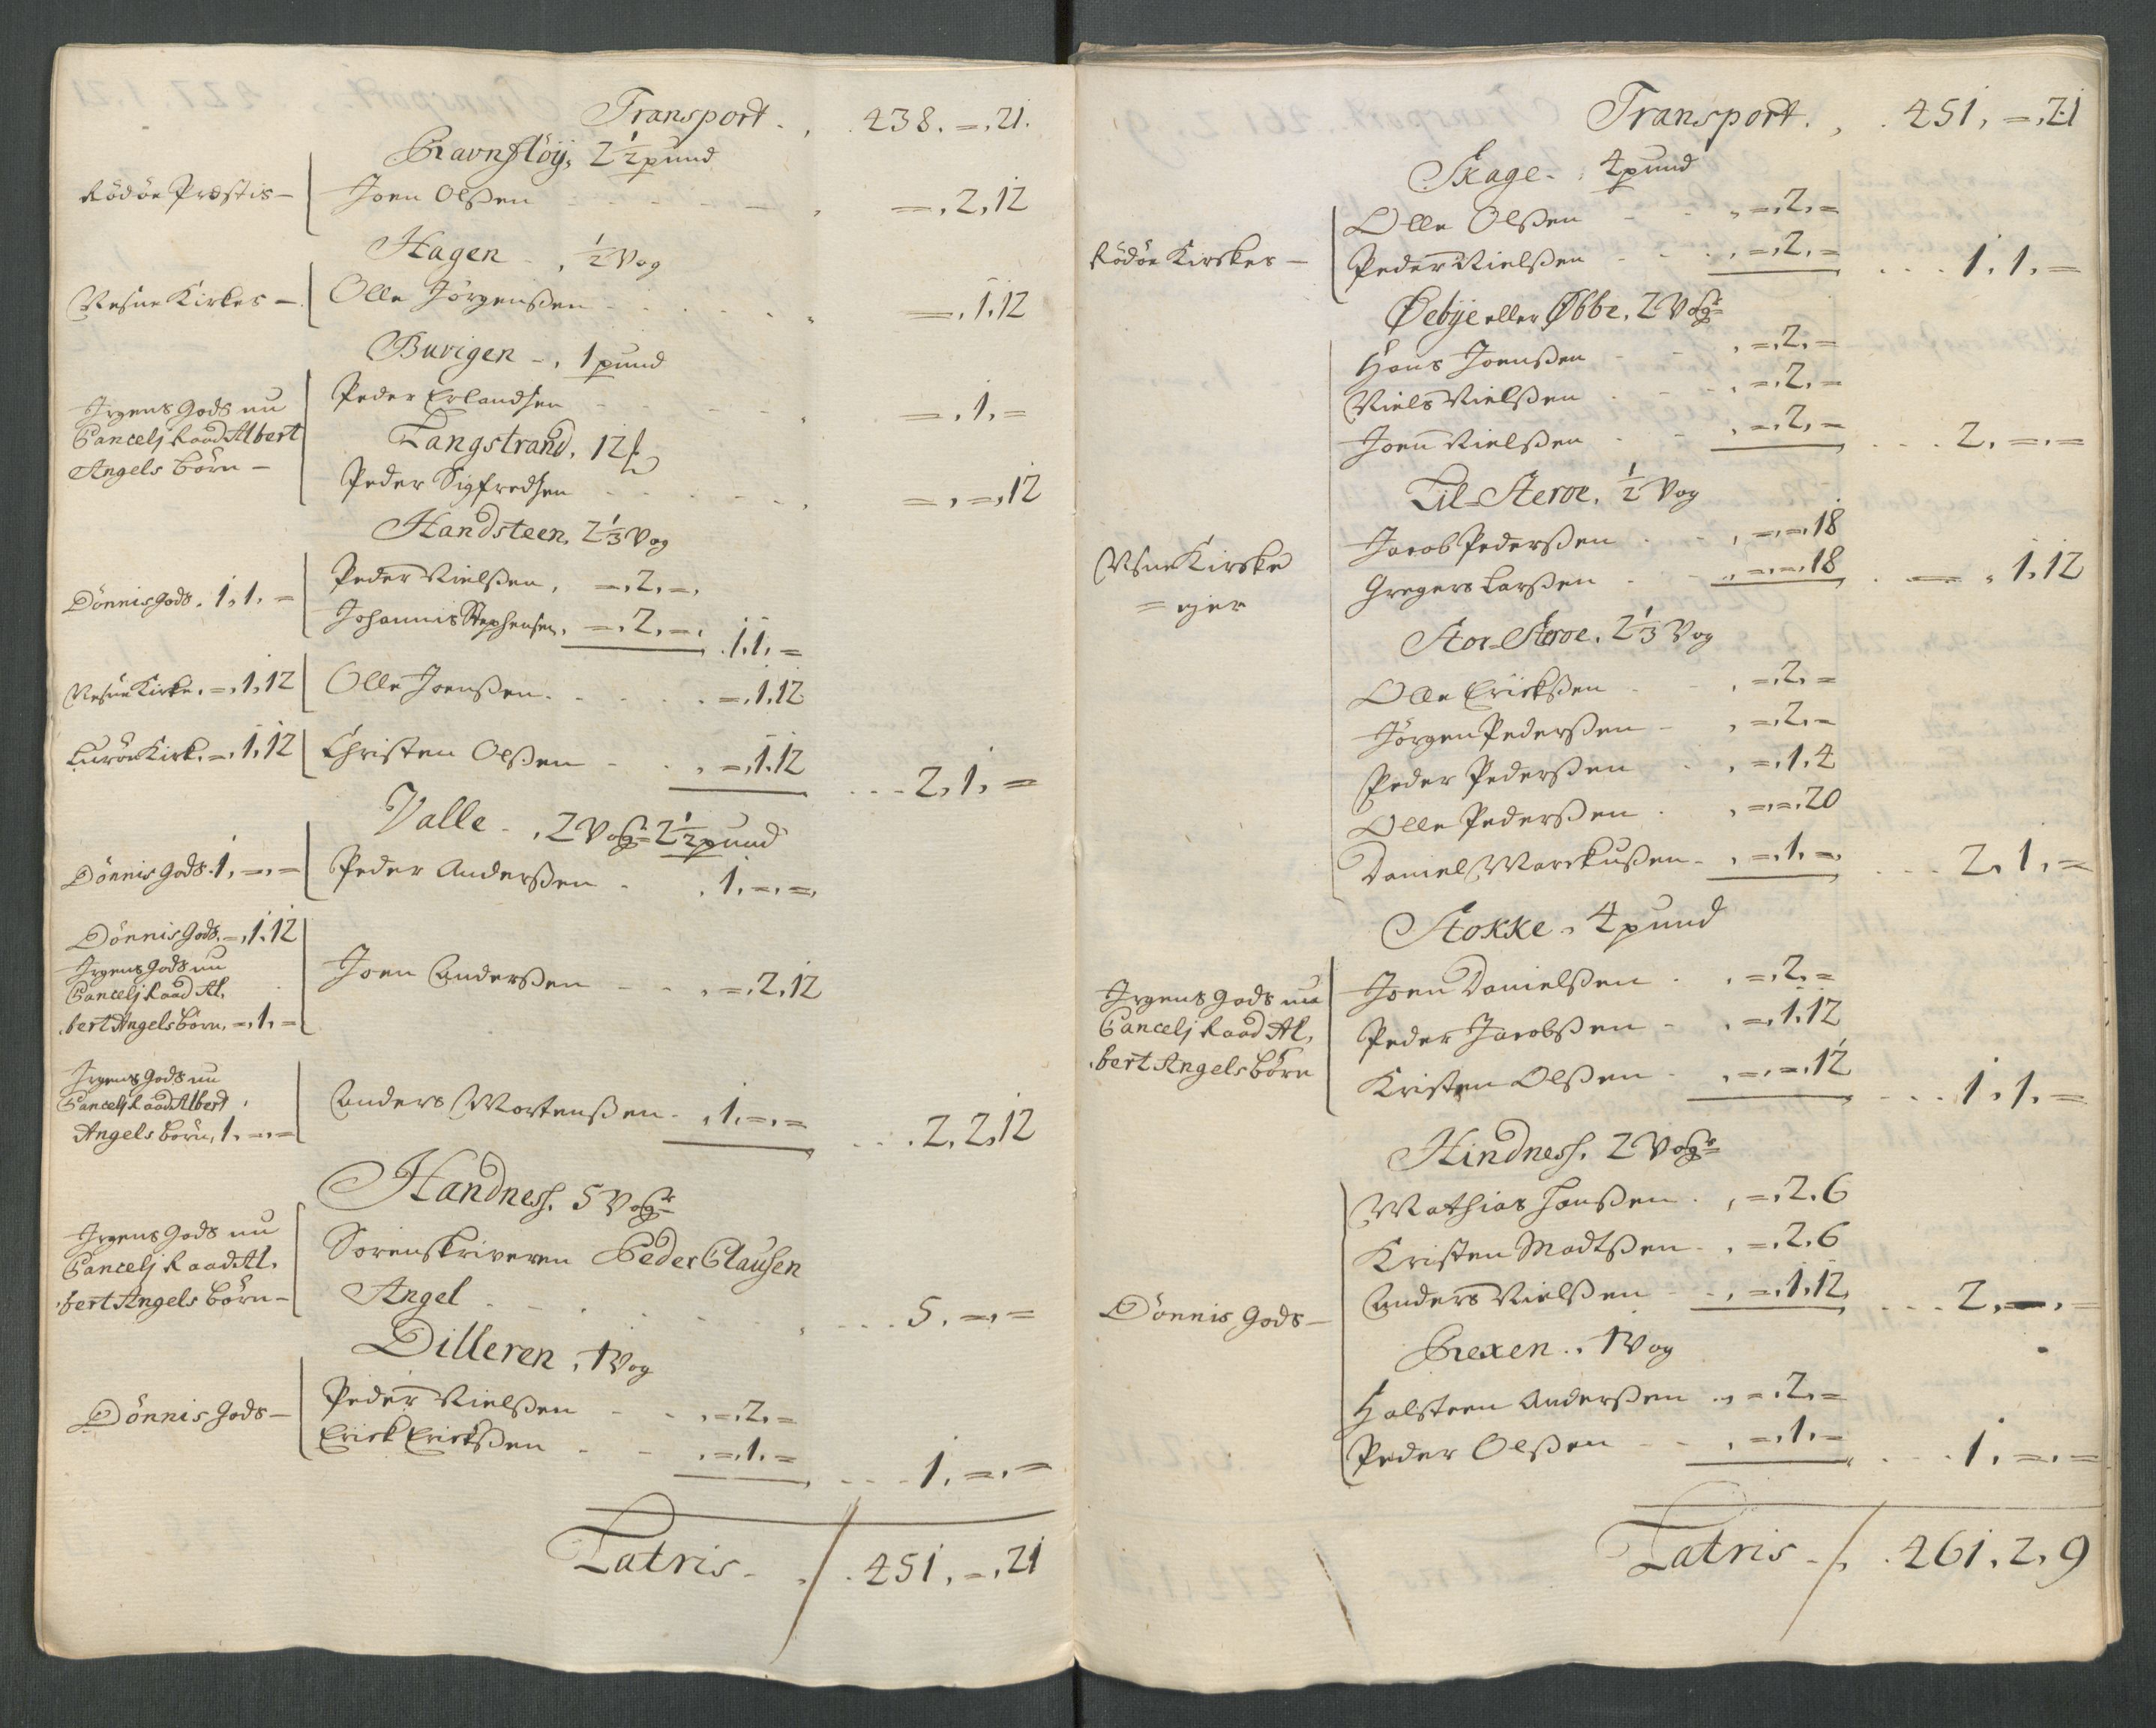 Transport . , . 438. =. 21.
Ravnfløÿ, 2 1/2 pund
Rödöe Præstis — Joen Olßen =. 2. 12
Hagen - , 1/2 Vog
Nesne Kirkes — Olle Jörgenßen =. 1. 12
Burigen - . 1 pund
Irgens Gods nu
Cancelj Raad Albert
Angels Börn —
Peder Erlandsen =. 1. =
Langstrand. 12
Peder Sigfredsen =. =. 12
Handsteen. 2 1/3 Vog
Dönnis Gods. 1. 1. = Peder Nielßen, =. 2. =.
Johannis Stephensen, =. 2. =. 1. 1. =
Nesne Kirke. =. 1. 12 Olle Joenßen. =. 1. 12
Luröe Kirk. =. 1. 12 Christen Olßen =. 1. 12 ... 2. 1. =
Valle - , 2 Vogr 2 1/2 pund
Dönnis Gods. 1. =. = Peder Anderßen 1. =. =.
Dönnis Gods. =. 1. 12
Irgens Gods nu
Cancelj Raad Al,
bert Angels Börn. =. 1. =
Joen Anderßen =. 2. 12
Irgens Gods nu
Cancelj Raad Albert
Angels Börn, 1. =. =
Anders Mortenßen. 1. =. = ... 2. 2. 12
Handness. 5 Vogr
Irgens Gods nu
Cancelj Raad Al,
bert Angels Börn —
Sorenskriveren Peder Clausen
Angel ... 5. =. =
Dilleren, 1 Vog
Dönnis Gods — Peder Nielßen =. 2. =
Erick Erickßen =. 1. = ... 1. =. =
Latris - . / . 451. =. 21
Transport. , . 451. =. 21
Skage. 4 pund
Olle Olßen =. 2. =
Rödöe Kirskes — Peder Nielßen =. 2. = ... 1. 1. =
Øebÿe eller Øbbe. 2 Vogr
Hans Joenßen =. 2. =
Niels Nielßen =. 2. =
Joen Nielßen =. 2. = ... 2. =. =
Lil-Steroe. 1/2 Vog
Jacob Pederßen =. =. 18
Nesne Kirske
= ejer
Gregers Larßen =. =. 18 . = . 1. 12
Stor-Steroe. 2 1/3 Vog
Olle Erickßen =. 2. =
Jörgen Pederßen =. 2. =
Peder Pederßen =. 1. 4
Olle Pederßen =. =. 20
Daniel Marckußen =. 1. =. ... 2. 1. =
Stokke. 4 pund
Irgens Gods nu
Cancelj Raad Al,
bert Angels Börn
Joen Danielßen =. 2. =
Peder Jacobßen =. 1. 12
Kristen Olßen =. =. 12 ... 1. 1. =
Hindness. 2 Vogr
Mathias Hanßen. =. 2. 6
Kristen Madtßen. =. 2. 6
Dönnis Gods — Anders Nielßen =. 1. 12. ... 2. =. =
Rexen. . 1 Vog
Holsteen Anderßen =. 2. =
Peder Olßen =. 1. = ... 1. =. =
Latris - / . . 461. 2. 9